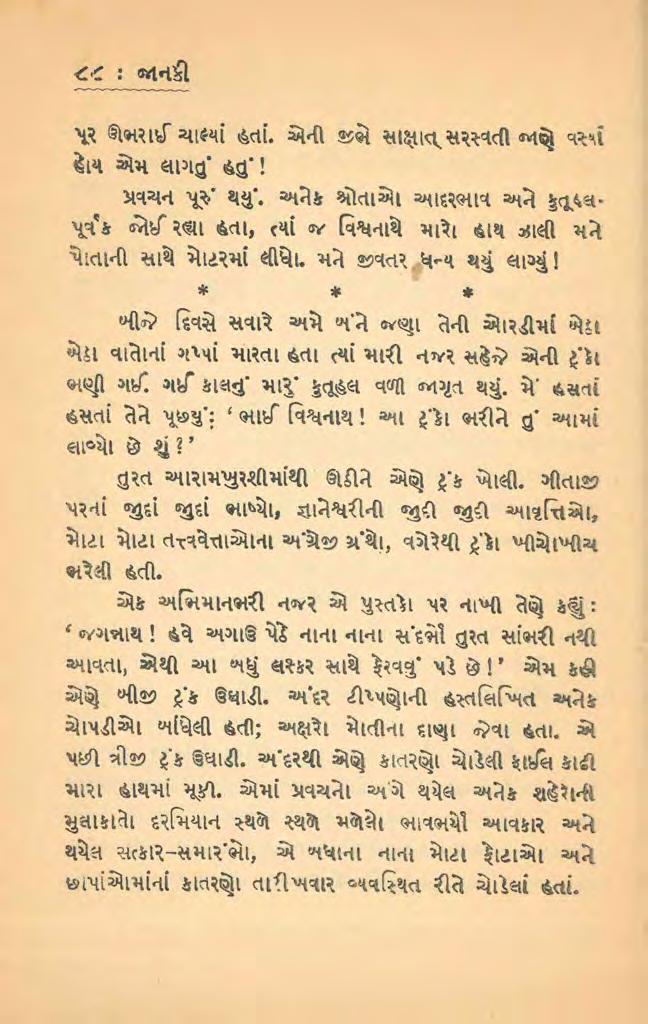 ૮૮ : જાનકી
પૂર ઊભરાઈ ચાલ્યાં હતાં. એની જીભે સાક્ષાત્ સરસ્વતી જાણે વસ્યાં
હોય એમ લાગતું હતું!
પ્રવચન પૂરું થયું. અનેક શ્રોતાઓ આદરભાવ અને કુતૂહલ-
પૂર્વક જોઈ રહ્યા હતા, ત્યાં જ વિશ્વનાથે મારો હાથ ઝાલી મને
પોતાની સાથે મોટરમાં લીધો. મને જીવતર ધન્ય થયું લાગ્યું!
* * *
બીજે દિવસે સવારે અમે બંને જણા તેની ઓરડીમાં બેઠા
બેઠા વાતોનાં ગપ્પાં મારતા હતા ત્યાં મારી નજર સહેજે એની ટ્રંકો
ભણી ગઈ. ગઈ કાલનું મારું કુતૂહલ વળી જાગૃત થયું. મેં હસતાં
હસતાં તેને પૂછયું: ‘ભાઈ વિશ્વનાથ! આ ટ્રંકો ભરીને તું આમાં
લાવ્યો છે શું?’
તુરત આરામખુરશીમાંથી ઊઠીને એણે ટ્રંક ખોલી. ગીતાજી
પરનાં જુદાં જુદાં ભાષ્યો, જ્ઞાનેશ્વરીની જુદી જુદી આવૃત્તિઓ,
મોટા મોટા તત્ત્વવેત્તાઓના અંગ્રેજી ગ્રંથો, વગેરેથી ટ્રંકો ખીચોખીચ
ભરેલી હતી.
એક અભિમાનભરી નજર એ પુસ્તકો પર નાખી તેણે કહ્યું:
‘જગન્નાથ! હવે અગાઉ પેઠે નાના નાના સંદર્ભો તુરત સાંભરી નથી
આવતા, એથી આ બધું લશ્કર સાથે ફેરવવું પડે છે!’ એમ કહી
એણે બીજી ટ્રંક ઉઘાડી. અંદર ટીપ્પણોની હસ્તલિખિત અનેક
ચોપડીઓ બાંધેલી હતી; અક્ષરો મોતીના દાણા જેવા હતા. એ
પછી ત્રીજી ટ્રંક ઉઘાડી. અંદરથી એણે કાતરણો ચોડેલી ફાઈલ કાઢી
મારા હાથમાં મૂકી. એમાં પ્રવચનો અંગે થયેલ અનેક શહેરોની
મુલાકાતો દરમિયાન સ્થળે સ્થળે મળેલો ભાવભર્યો આવકાર અને
થયેલ સત્કાર-સમારંભો, એ બધાના નાના મોટા ફોટાઓ અને
છાપાંઓમાંનાં કાતરણો તારીખવાર વ્યવસ્થિત રીતે ચોડેલાં હતાં.